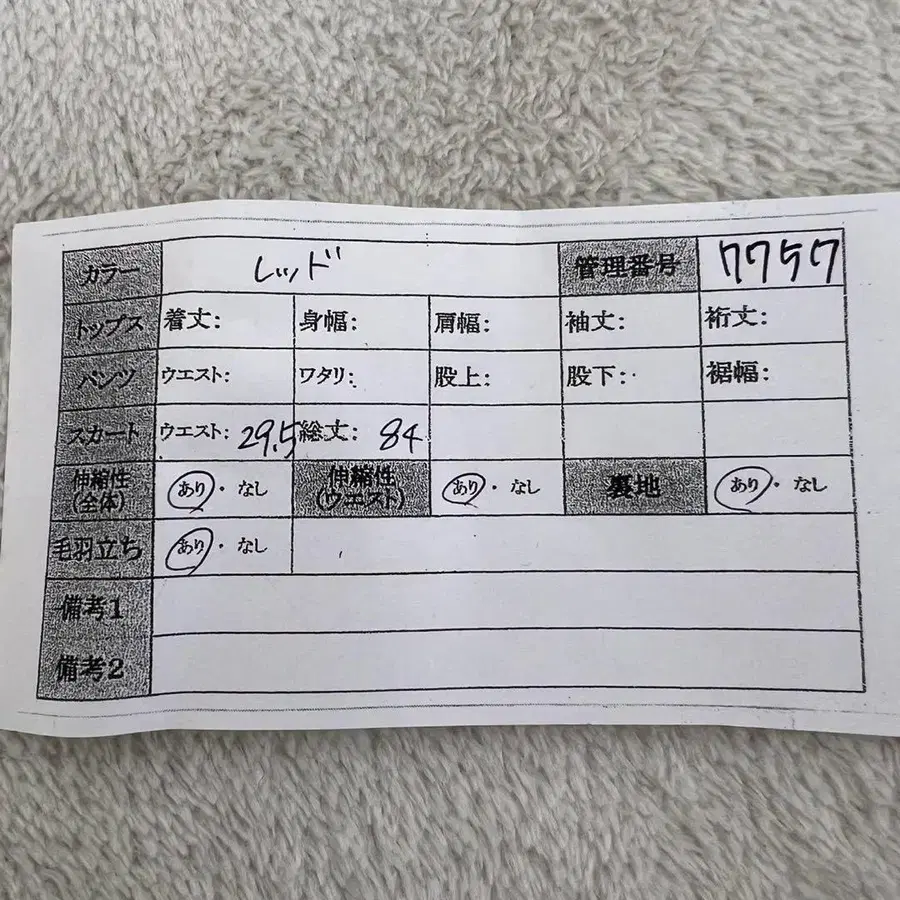 カラー レッド 管理番号 7757
トップス 着丈: 身幅: 肩幅: 袖丈: 裄丈:
パンツ ウエスト: ワタリ: 股上: 股下: 裾幅:
スカート ウエスト: 29.5 総丈: 84
伸縮性(全体) あり・なし 伸縮性(ウエスト) あり・なし 裏地 あり・なし
毛羽立ち あり・なし
備考1
備考2